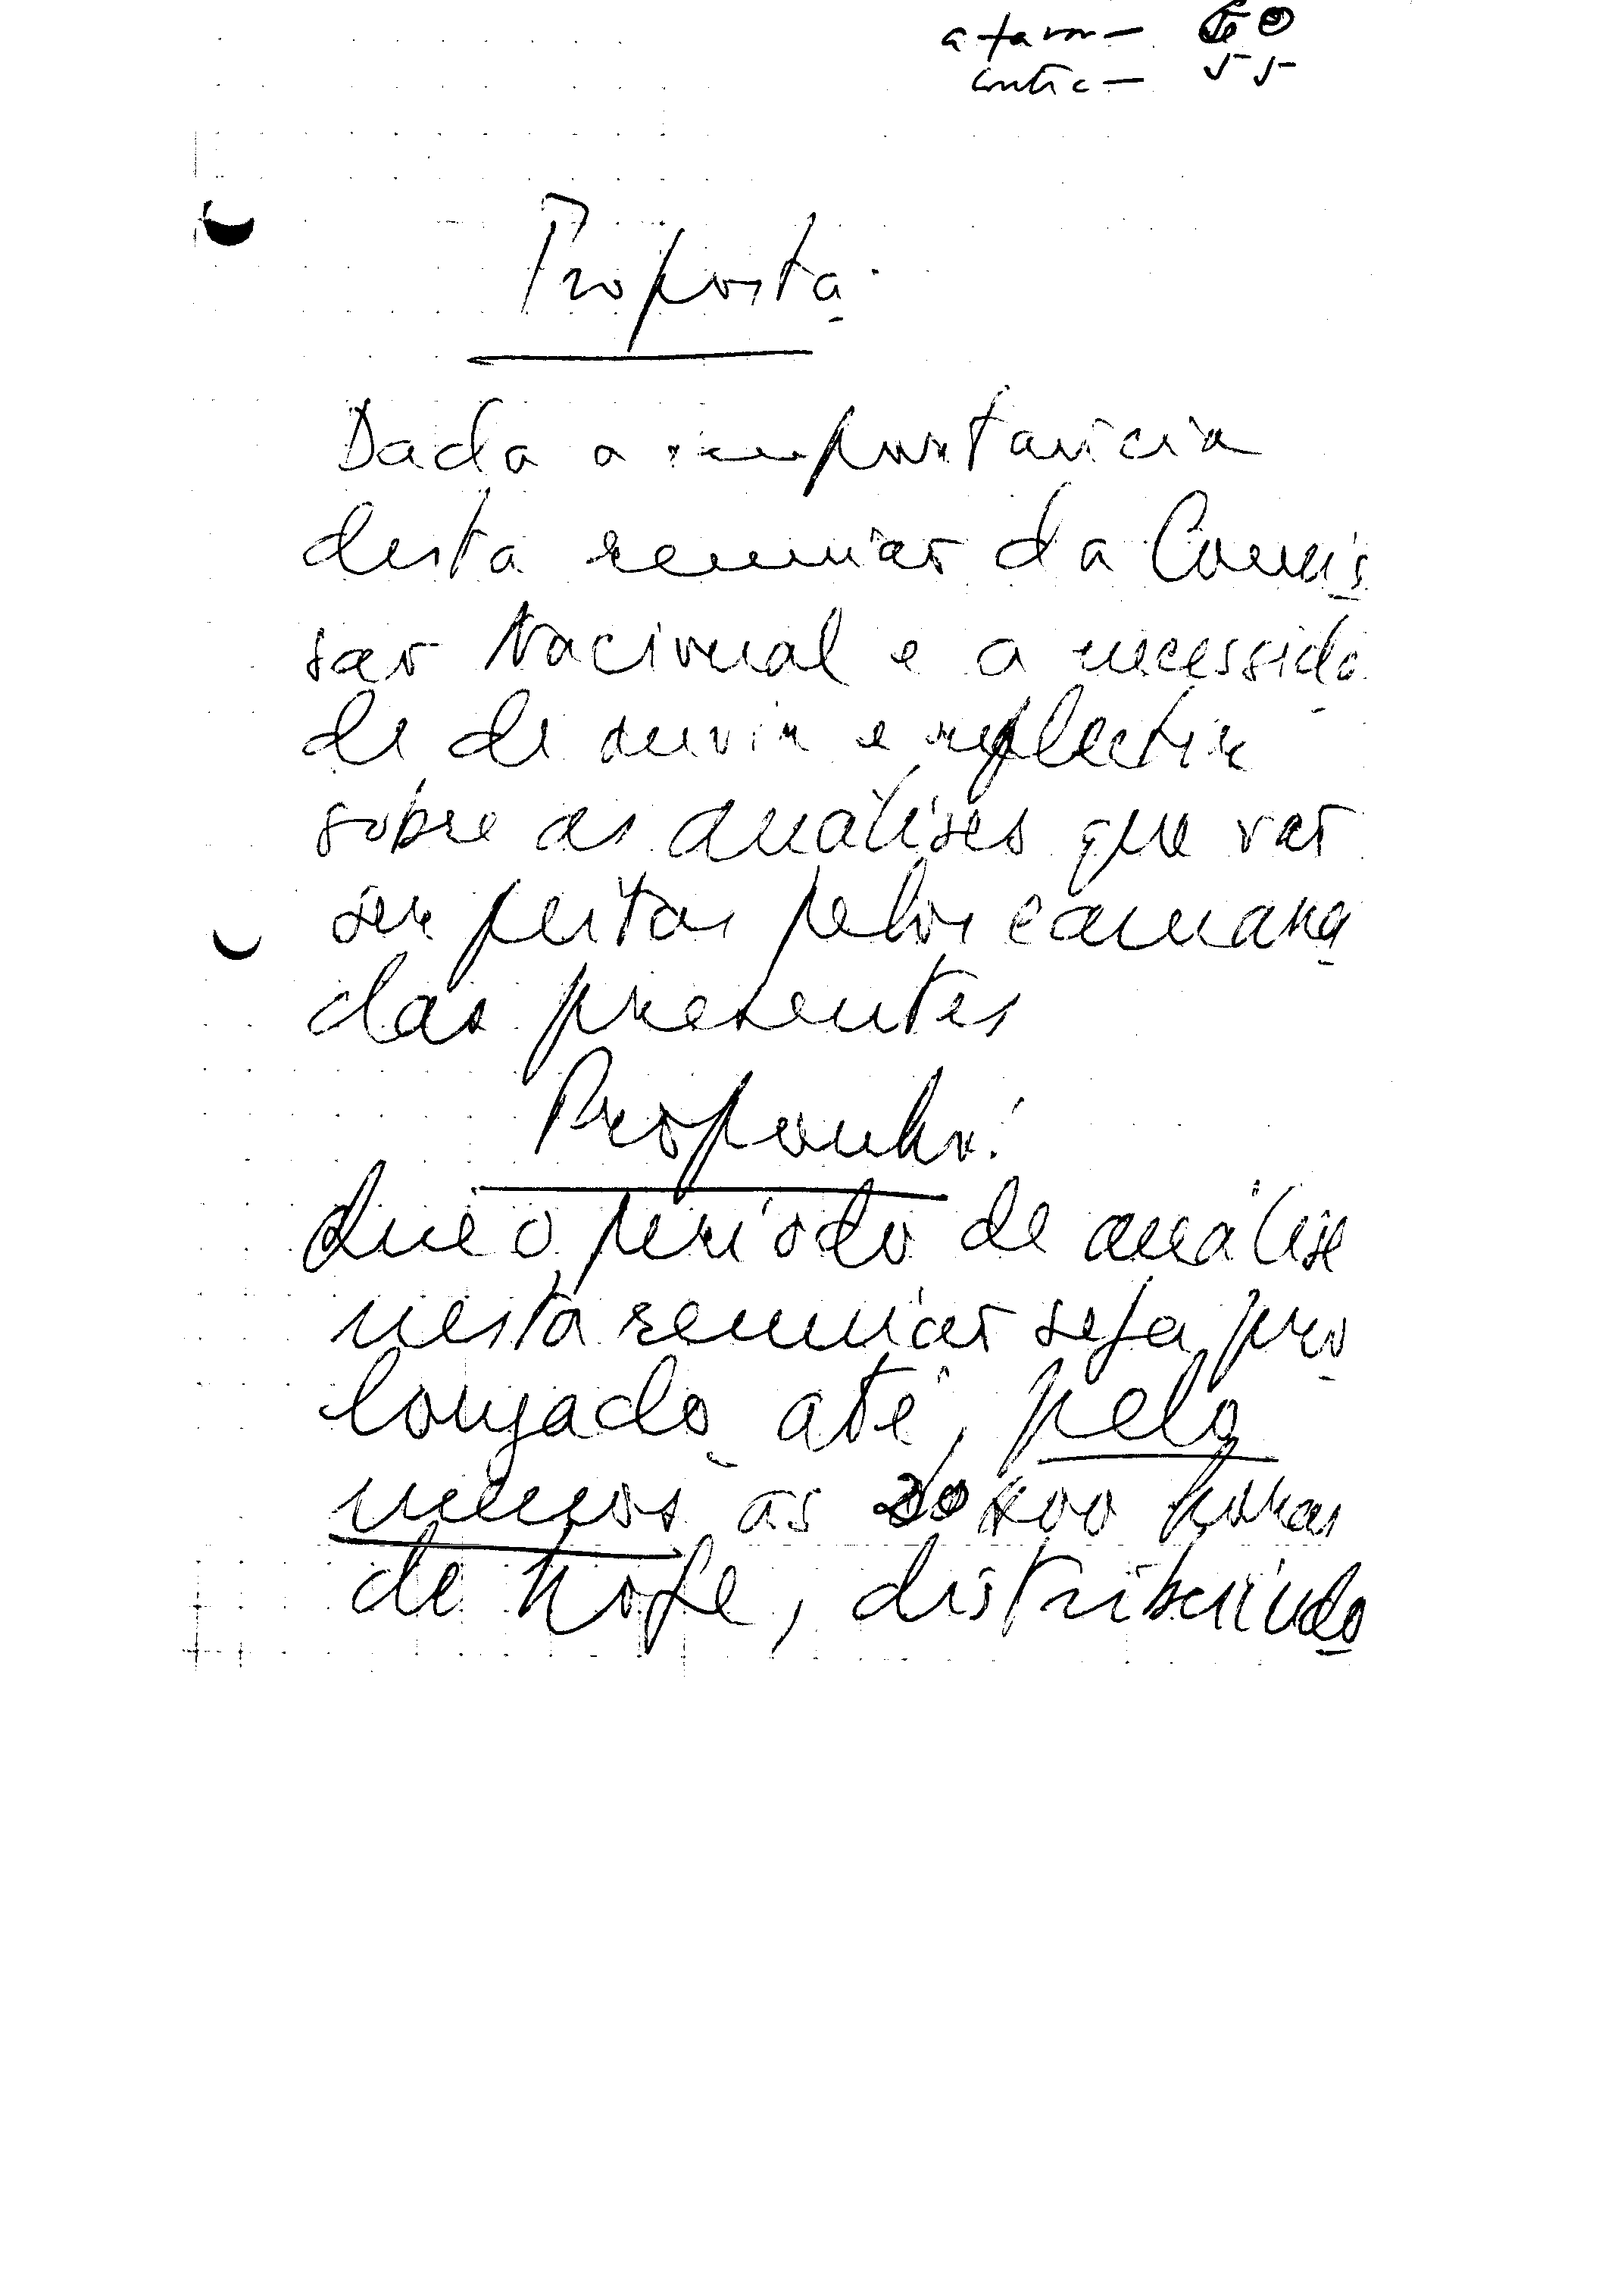 a favor —
contra — 55
Proposta
Dada a importancia
desta reunião da Comis
são Nacional e a necessida
de de ouvir e reflectir
sobre as análises que vão
ser feitas pelos camara
das presentes
Proponho:
Que o período de análise
nesta reunião seja pro
longado até, pelo
menos as horas
de hoje, distribuindo